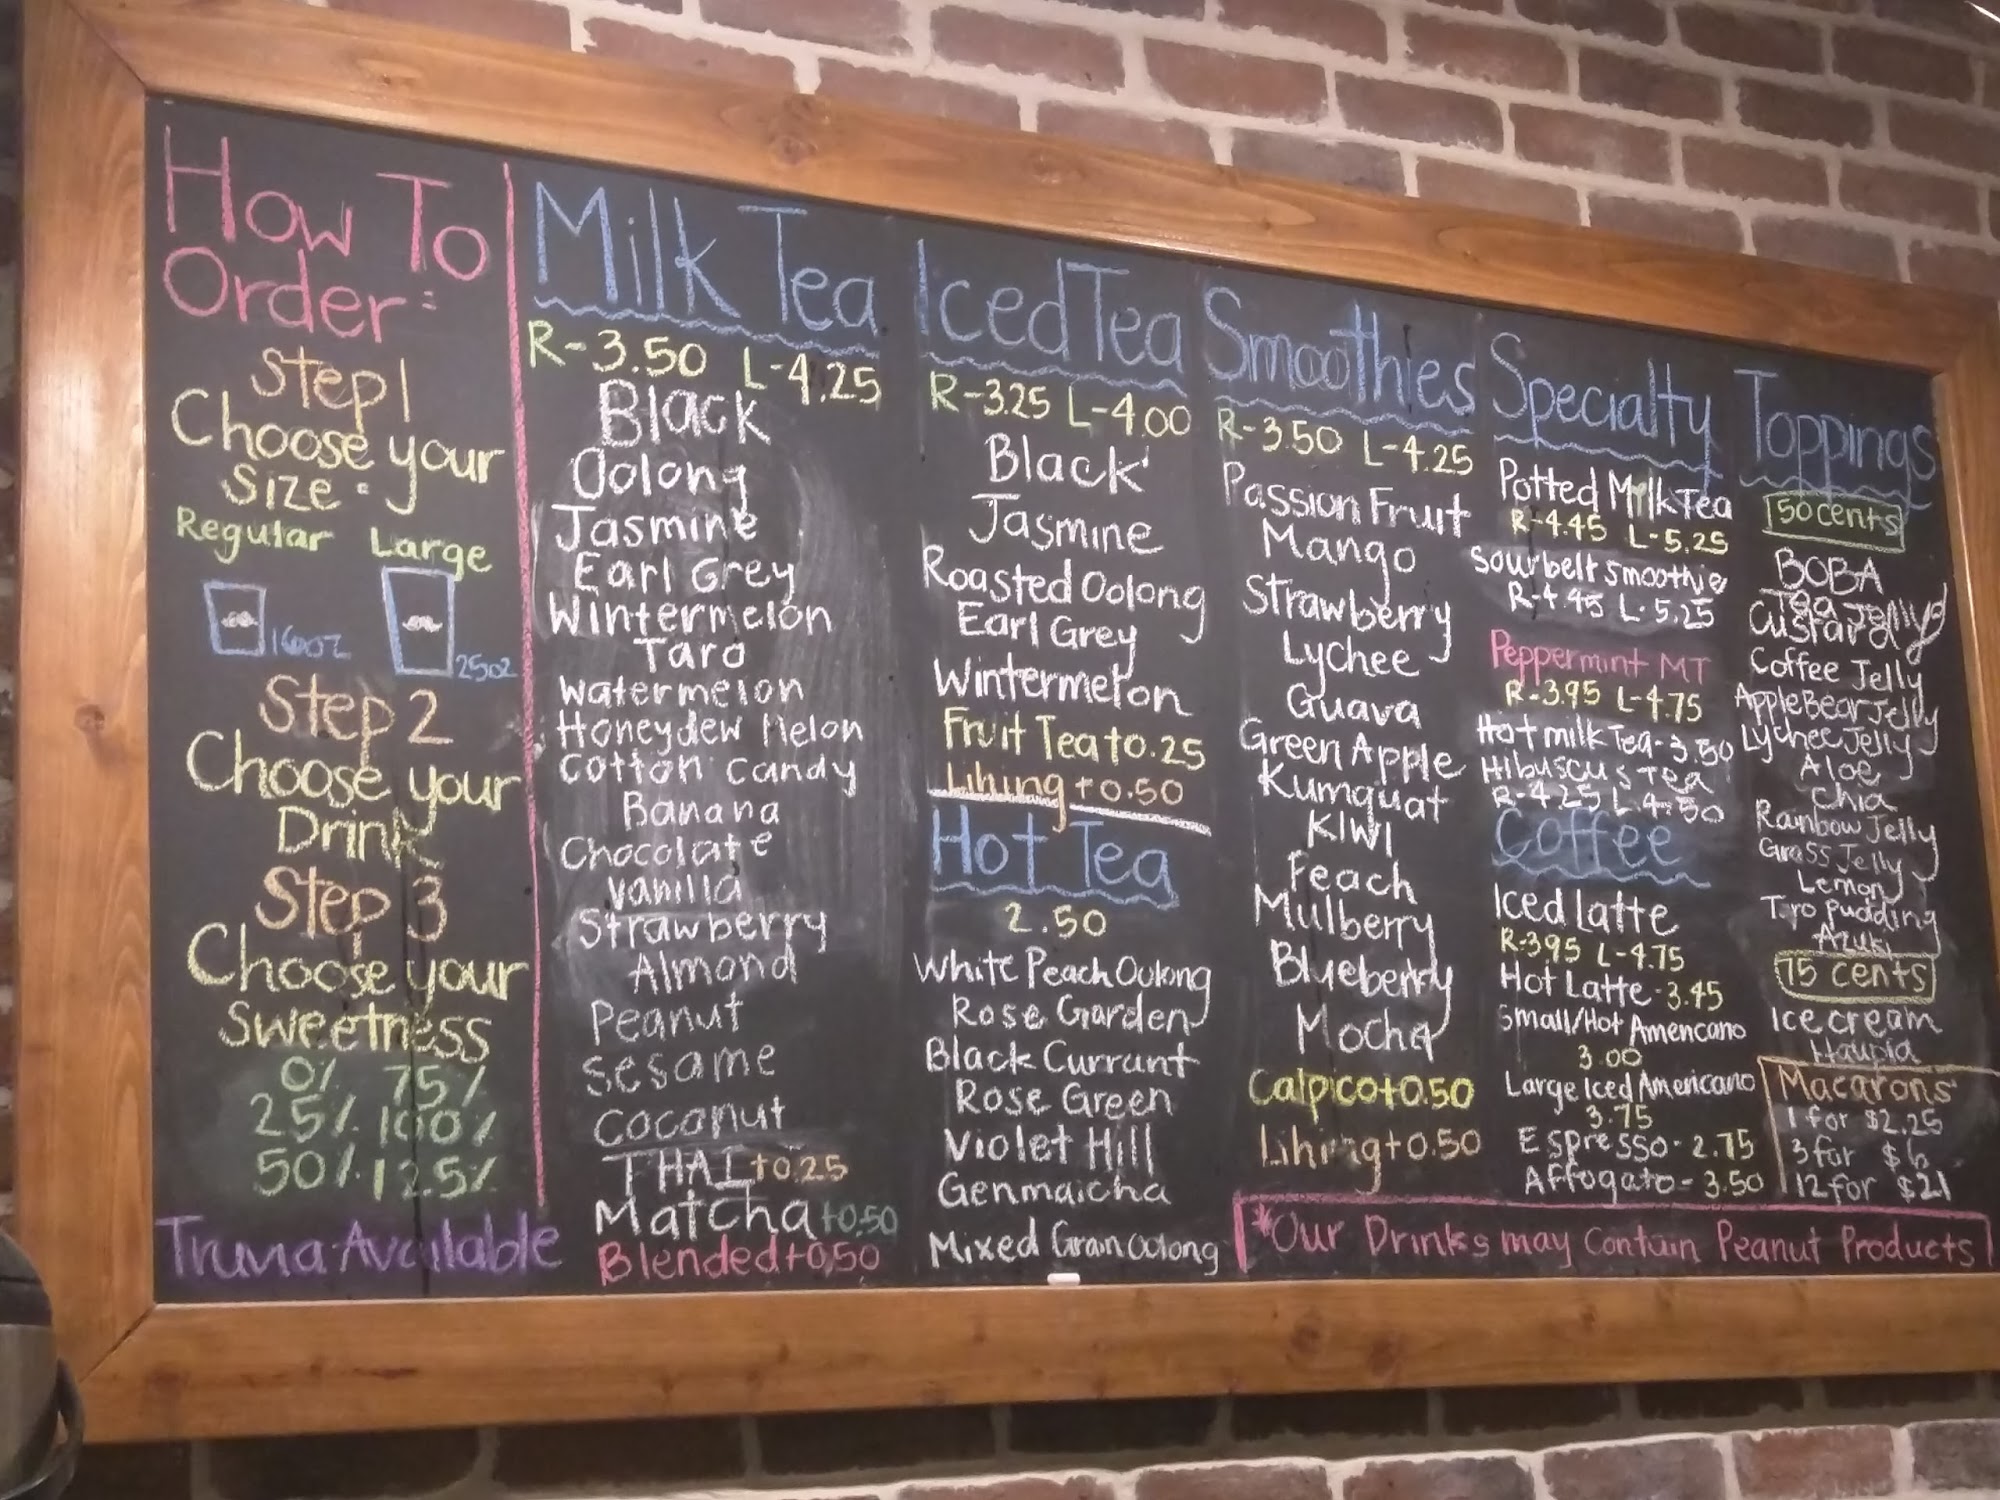 How To
Order:
Step 1
Choose your
Size:
Regular Large
16oz 25oz
Step 2
Choose your
Drink
Step 3
Choose your
Sweetness
0% 75%
25% 100%
50% 125%
Truvia Available
Milk Tea
R-3.50 L-4.25
Black
Oolong
Jasmine
Earl Grey
Wintermelon
Taro
Watermelon
Honeydew Melon
Cotton Candy
Banana
Chocolate
Vanilla
Strawberry
Almond
Peanut
Sesame
Coconut
THAI +0.25
Matcha +0.50
Blended +0.50
Iced Tea
R-3.25 L-4.00
Black
Jasmine
Roasted Oolong
Earl Grey
Wintermelon
Fruit Tea +0.25
Lihing +0.50
Hot Tea
2.50
White Peach Oolong
Rose Garden
Black Currant
Rose Green
Violet Hill
Genmaicha
Mixed Grain Oolong
Smoothies
R-3.50 L-4.25
Passion Fruit
Mango
Strawberry
Lychee
Guava
Green Apple
Kumquat
Kiwi
Peach
Mulberry
Blueberry
Mocha
Calpico +0.50
Lihing +0.50
Specialty
Potted Milk Tea
R-4.45 L-5.25
Sourbelt Smoothie
R-4.45 L-5.25
Peppermint MT
R-3.95 L-4.75
Hot milk Tea-3.50
Hibuscus Tea
R-4.25 L-4.50
Coffee
Iced Latte
R-3.95 L-4.75
Hot Latte-3.45
Small/Hot Americano
3.00
Large Iced Americano
3.75
Espresso-2.75
Affogato-3.50
Toppings
50 cents
BOBA
Tea Jelly
Custard
Coffee Jelly
Apple Bear Jelly
Lychee Jelly
Aloe
Chia
Rainbow Jelly
Grass Jelly
Lemon
Taro Pudding
Azuki
75 cents
Ice cream
Haupia
Macarons
1 for $2.25
3 for $6
12 for $21
*Our Drinks may Contain Peanut Products